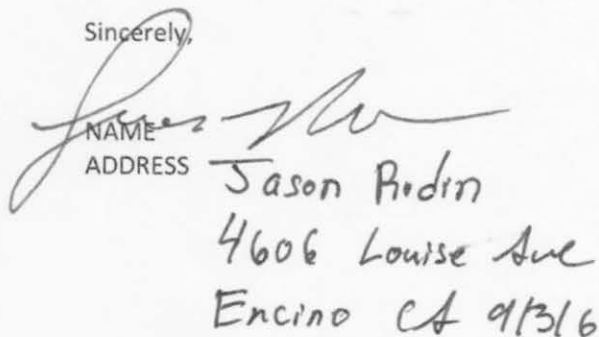 Sincerely,
NAME
ADDRESS
Jason Rodin
4606 Louise Ave
Encino CA 91316